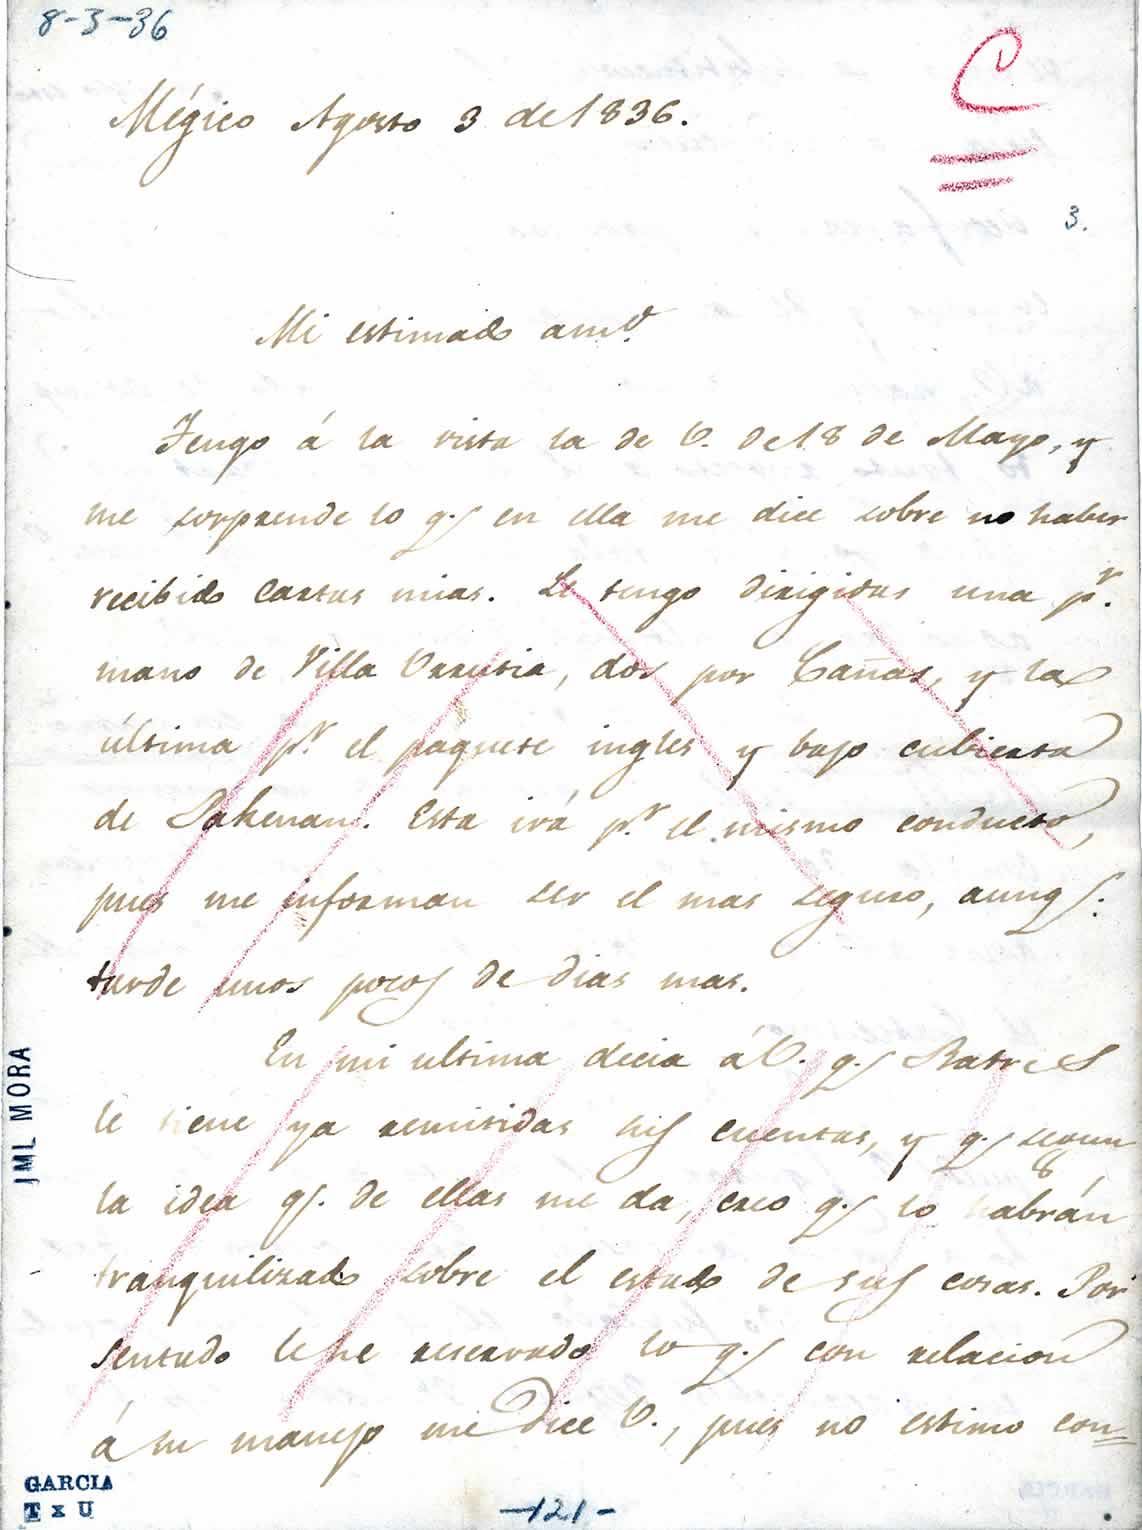 8-3-36
C
Mégico Agosto 3 de 1836.
3.
Mi estimado amo.
Tengo á la vista la de V. de 18 de Mayo, y
me sorprende lo q.e en ella me dice sobre no haber
recibido cartas mias. Le tengo dirigidas una p.r
mano de Villa Urrutia, dos por Cañas, y la
última p.r el paquete ingles y bajo cubierta
de Pakenam. Esta irá p.r el mismo conducto,
pues me informan ser el mas seguro, aunq.e
tarde unos pocos de dias mas.
En mi ultima decia á V. q.e Batres
le tiene ya remitidas sus cuentas, y q.e segun
la idea q.e de ellas me da, creo q.e lo habrán
tranquilizado sobre el estado de sus cosas. Por
sentado le he reservado lo q.e con relacion
á su manejo me dice V., pues no estimo con=
JML MORA
GARCIA
T x U
-121-